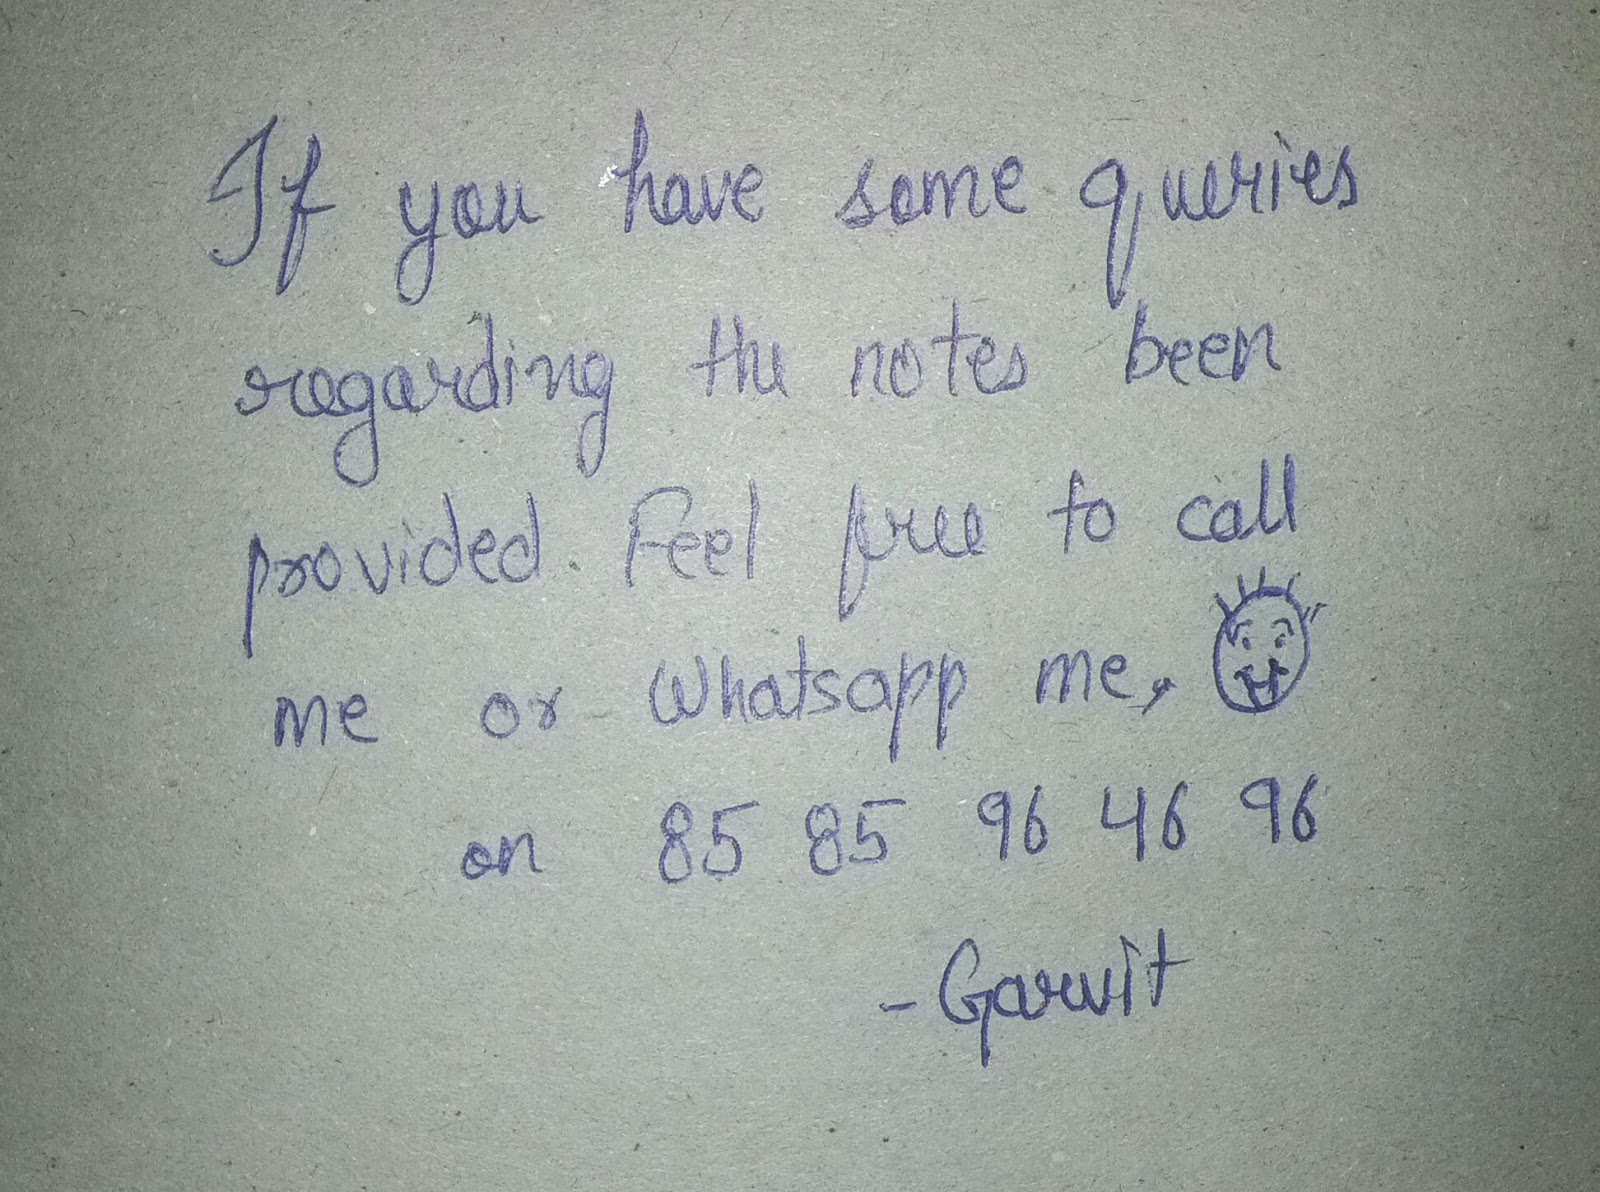 If you have some queries
regarding the notes been
provided. Feel free to call
me or Whatsapp me,
on 85 85 96 46 96
- Garvit